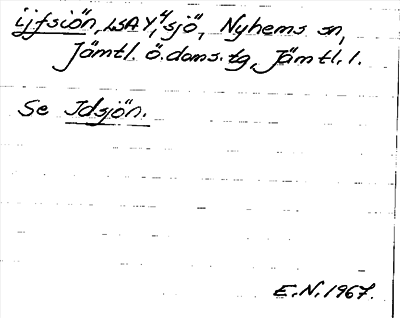 ijfsiön, LSA Y, 4 sjö, Nyhems sn,
Jämtl. ö. doms. tg, Jämtl. l.
Se Idsjön.
E.N. 1967.